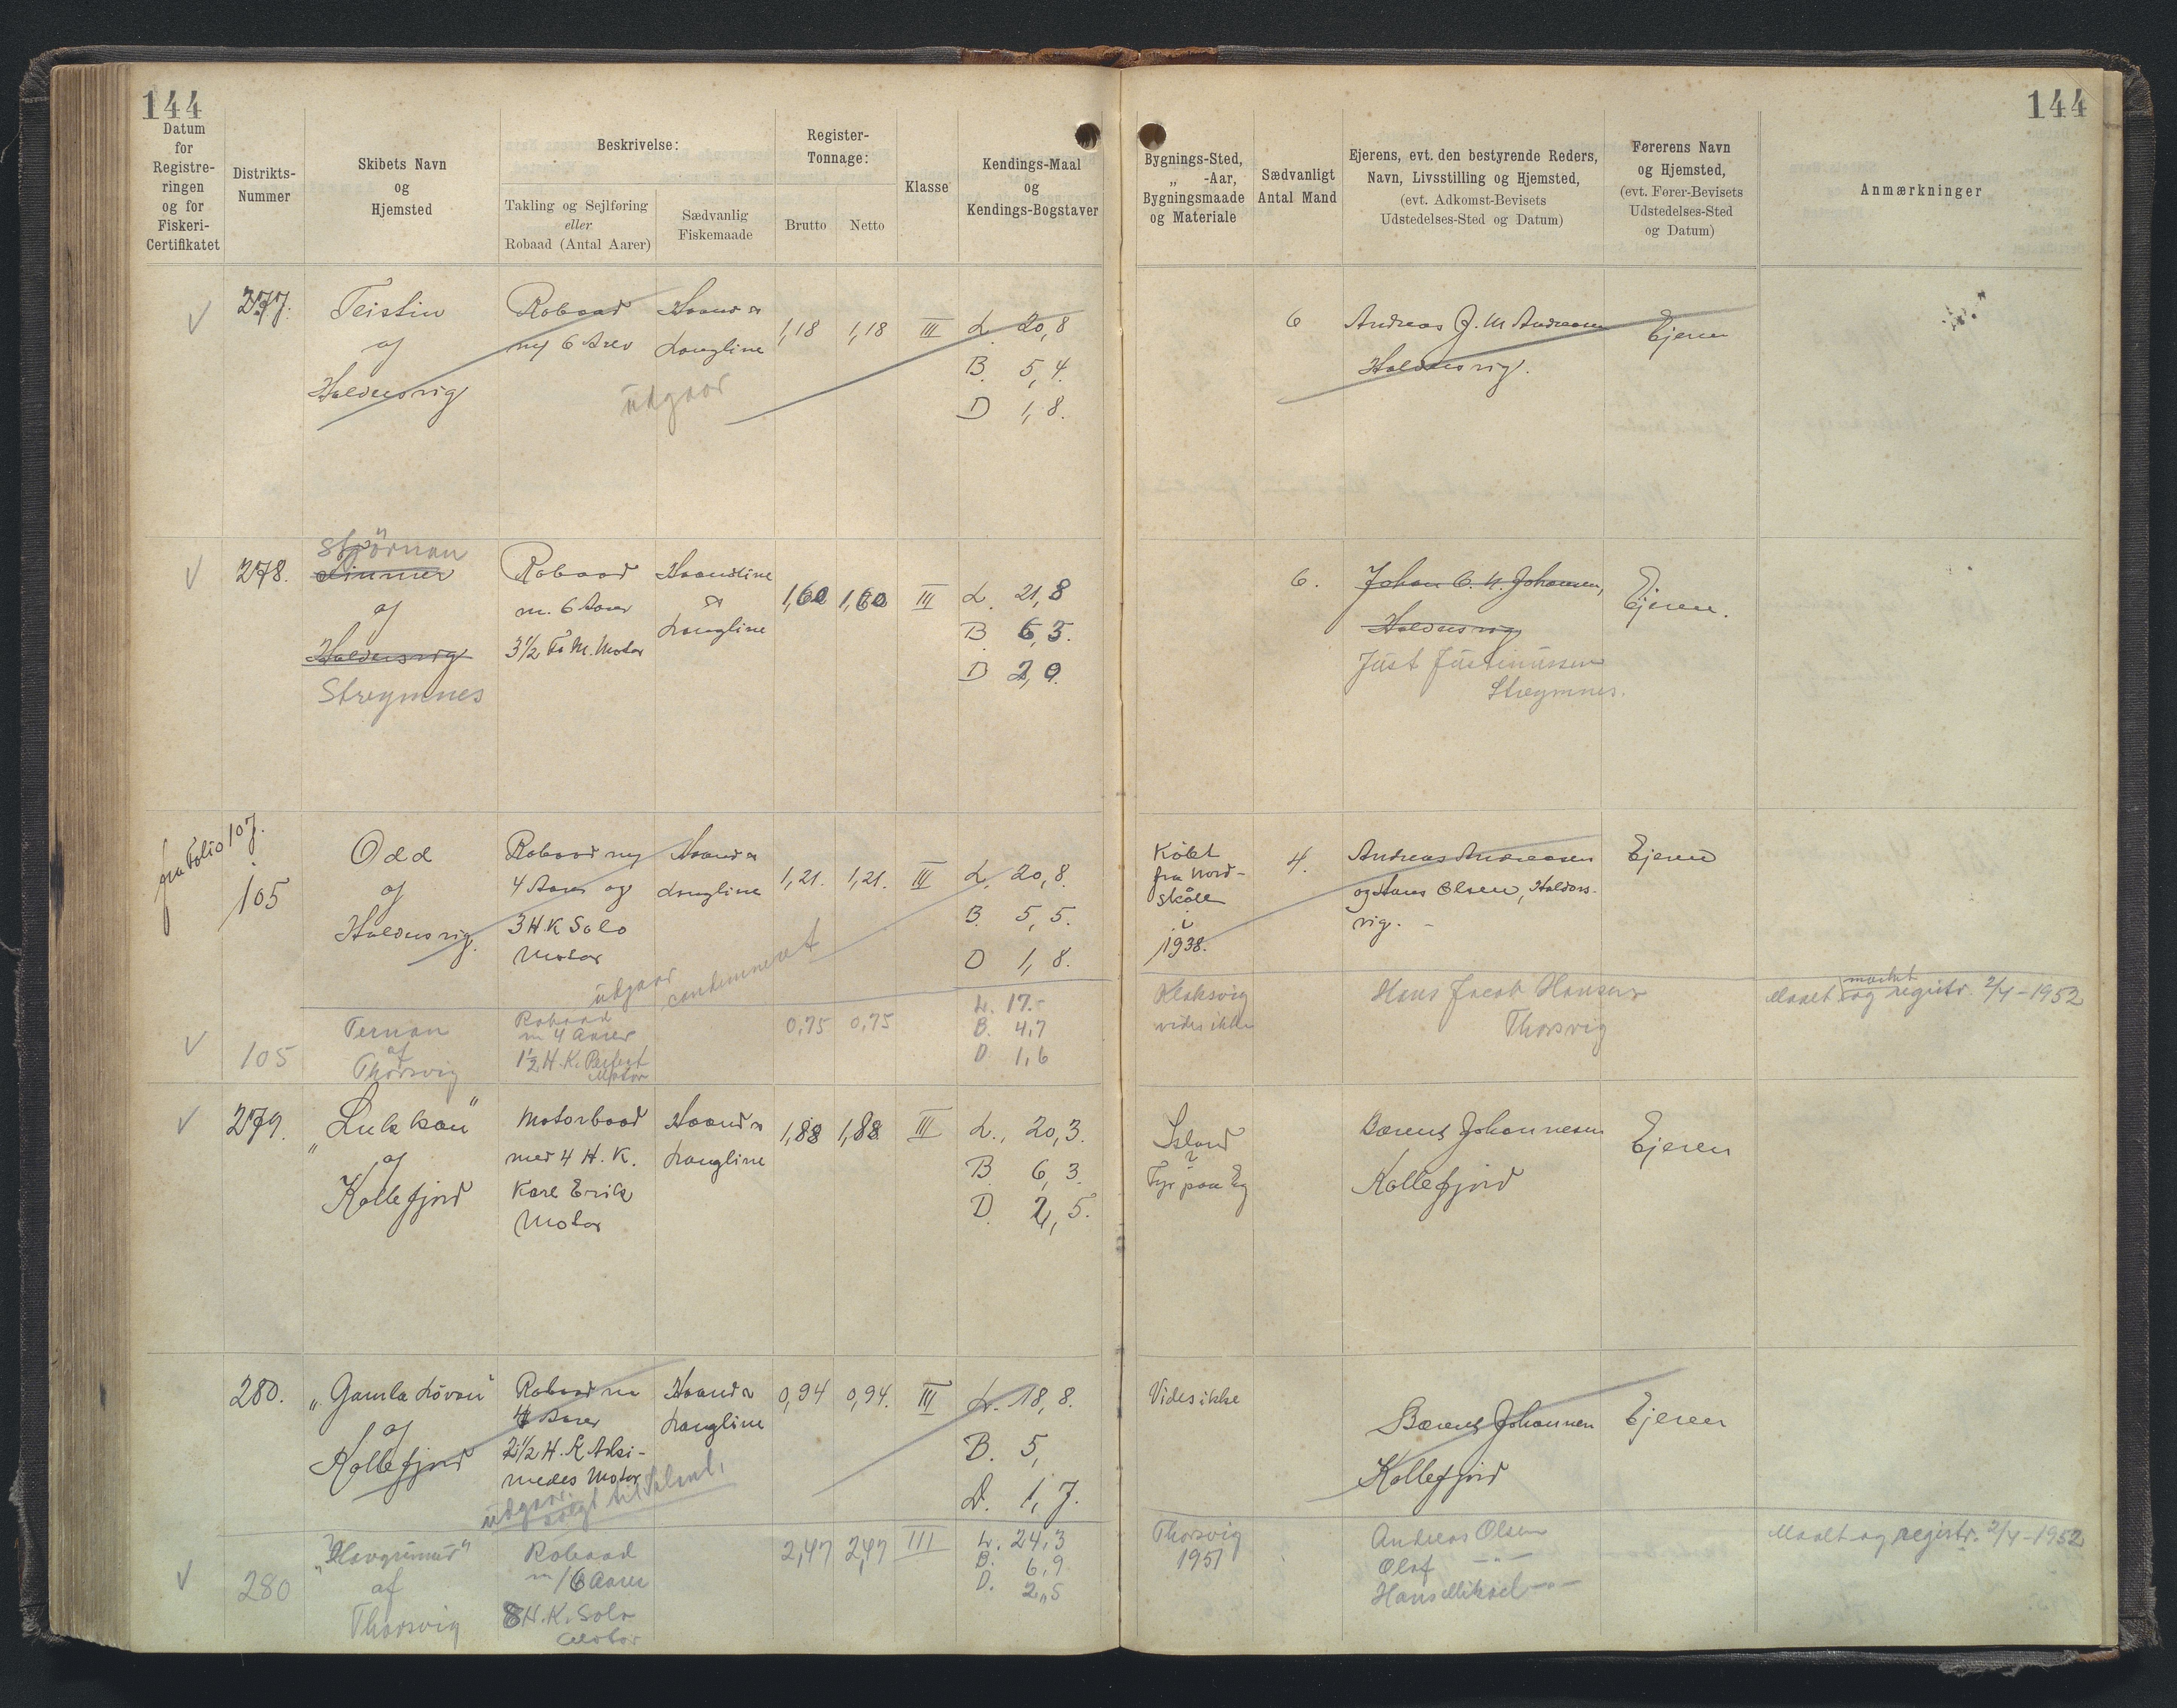 144
144
Datum
for
Registre-
ringen
og for
Fiskeri-
Certifikatet
Distrikts-
Nummer
Skibets Navn
og
Hjemsted
Beskrivelse:
Takling og Sejlføring
eller
Robaad (Antal Aarer)
Sædvanlig
Fiskemaade
Register-
Tonnage:
Brutto
Netto
Klasse
Kendings-Maal
og
Kendings-Bogstaver
Bygnings-Sted,
„ -Aar,
Bygningsmaade
og Materiale
Sædvanligt
Antal Mand
Ejerens, evt. den bestyrende Reders,
Navn, Livsstilling og Hjemsted,
(evt. Adkomst-Bevisets
Udstedelses-Sted og Datum)
Førerens Navn
og Hjemsted,
(evt. Fører-Bevisets
Udstedelses-Sted
og Datum)
Anmærkninger
277.
Teistin
af
Haldersvig
Robaad
m/ 6 Arer
Haand &
Langline
udgaar
1,18
1,18
III
L. 20,8
B. 5,4.
D 1,8.
6
Andreas J. M. Andreasen
Haldersvig.
Ejeren
278.
Stjörnan
af
Haldersvig
Streymnes
Robaad
m. 6 Aarer
3 1/2 Fr. M. Motor
Haandline
&
Langline
1,60
1,60
III
L. 21,8
B. 6,3.
D 2,0.
6.
Johan C. H. Johansen,
Haldersvig
Just Justinussen
Streymnes.
Ejeren.
fra Folio 107.
105
Odd
af
Haldersvig.
Robaad m/
4 Aarer og
3 H K Solo
Motor
Haand &
Langline
udgaar
condemneret
1,21.
1,21.
III
L. 20,8.
B. 5,5.
D 1,8.
Købt
fra Nord-
skåle
i
1938.
4.
Andreas Andreasen
og Hans Olsen, Haldors-
vig. -
Ejeren
105
Ternan
af
Thorsvig
Robaad
m 4 Aarer
1 1/2 H.K. Perfect
Motor
0,75
0,75
L. 17.-
B. 4,7
D 1,6
Klaksvig
vides ikke
Hans Jacob Hansen
Thorsvig
Maalt mærket og registr. 2/4-1952
279.
"Lukkan"
af
Kollefjord
Motorbaad
med 4 H. K.
Karl Erik
Motor
Haand &
Langline
1,88
1,88
III
L., 20,3.
B. 6,3.
D. 2,5.
Island
?
Fyr paa Eg
Barent Johannesen
Kollefjord
Ejeren
280.
„Gamla Lóvan"
af
Kollefjord
Robaad m
4 Aarer
2 1/2 H. K Arki-
medes Motor
Haand &
Langline
udgaar.
solgt til Island,
0,94
0,94.
III
L. 18,8.
B. 5,
D. 1,7.
Vides ikke
Barent Johannesen
Kollefjord
Ejeren
280
„Havgrimur"
af
Thorsvig
Robaad
m/6 Aarer
8 H.K. Solo
Motor
2,47
2,47
III
L. 24,3
B. 6,9
D. 2,5
Thorsvig
1951
Andreas Olsen
Olaf —"—
Hans Mikael —"—
Maalt og registr. 2/4-1952